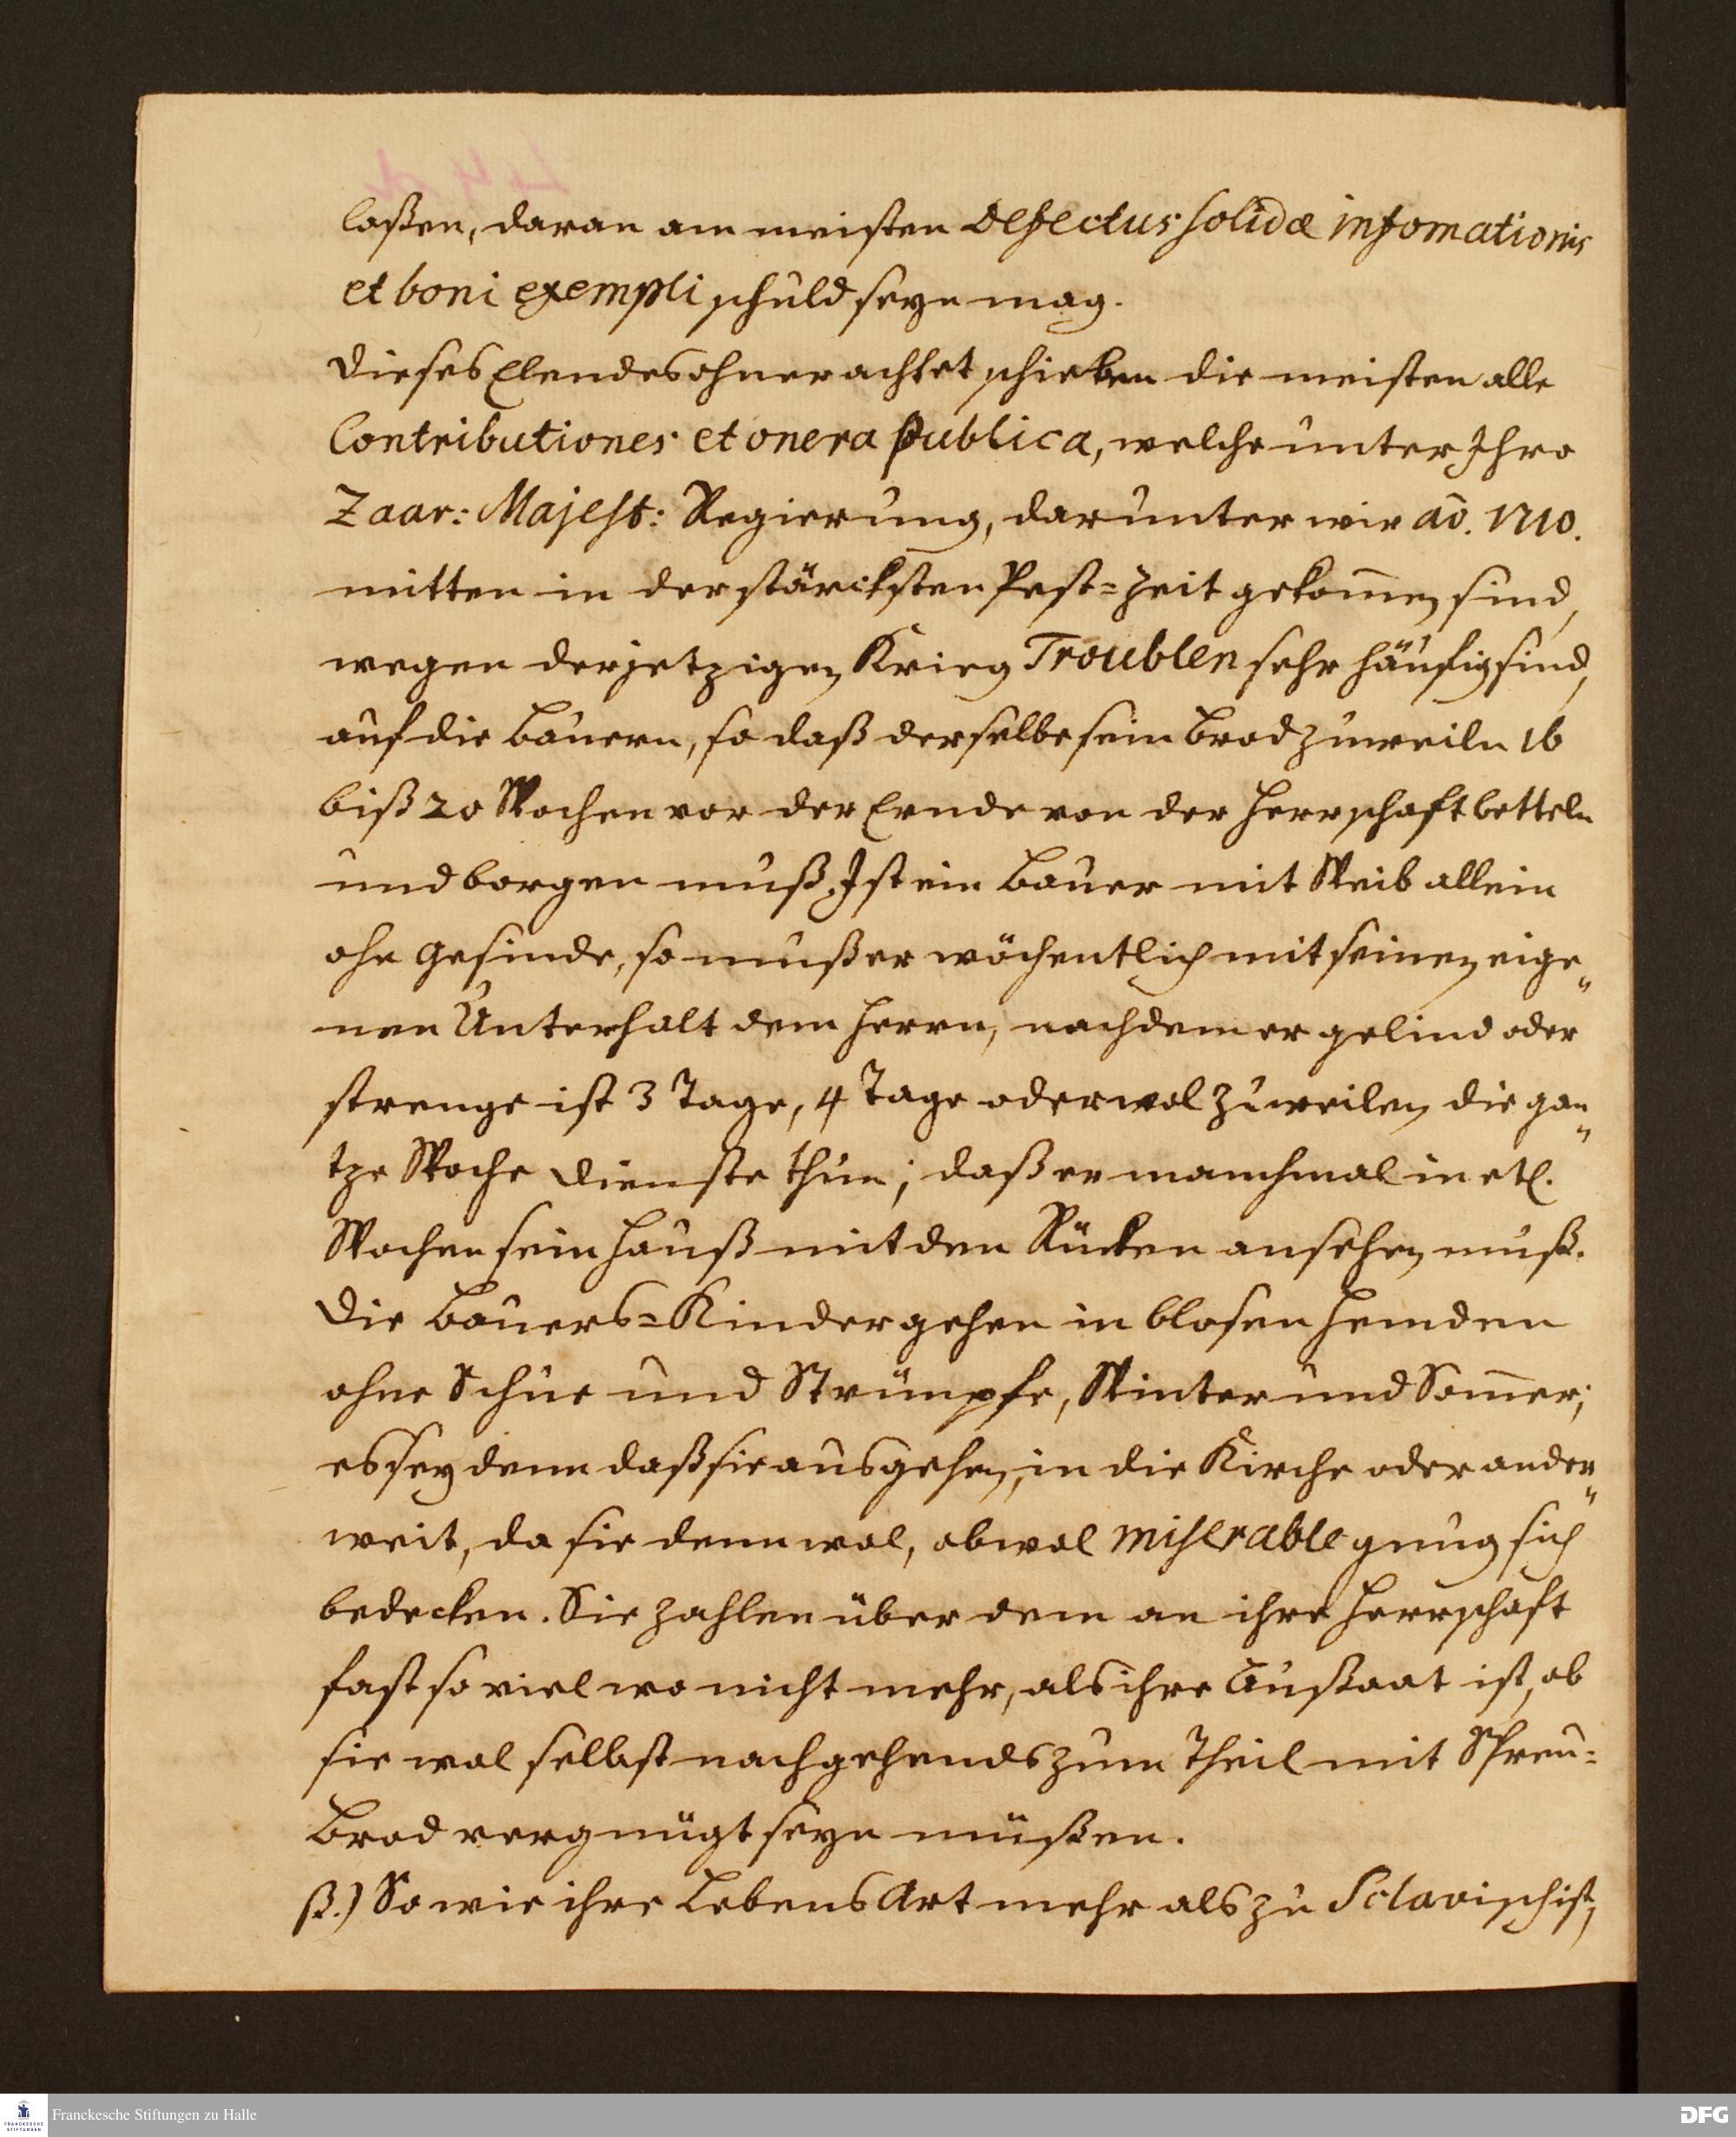 laßen, daran am meisten defectus solidæ infomationis
et boni exempli schuld seyn mag.
Dieses Elendes ohnerachtet schieben die meisten alle
Contributiones et onera publica, welche unter Ihro
Zaar: Majest: Regierung, darunter wir aõ. 1710.
mitten in der stärcksten Pest=Zeit gekom̄en sind,
wegen der jetzigen Krieg Troublen sehr häufig sind,
auf die Bauern, so daß derselbe sein Brod zuweiln 16
biß 20 Wochen vor der Ernde von der Herrschaft betteln
und borgen muß. Ist ein Bauer mit Weib allein
ohn Gesinde, so muß er wöchentlich mit seinen eige„
nen Unterhalt dem Herrn, nachdem er gelind oder
strenge ist 3 Tage, 4 Tage oder wol zuweilen die gan„
tze Woche Dienste thun; daß er manchmal in etl.
Wochen sein Hauß mit den Rücken ansehen muß.
Die Bauers=Kinder gehen in blosen Hemden
ohne Schue und Strümpfe, Winter und Som̄er;
es sey denn daß sie ausgehen, in die Kirche oder ander„
weit, da sie denn wol, obwol miserable gnug sich
bedecken. Sie zahlen über dem an ihre Herrschaft
fast so viel wo nicht mehr, als ihre Außaat ist, ob
sie wol selbst nachgehends zum Theil mit Spreu=
Brod vergnügt seyn müßen.
ß.) So wie ihre Lebens Art mehr als zu Sclavisch ist,
Franckesche Stiftungen zu Halle
DFG
FRANCKESCHE
STIFTUNGEN